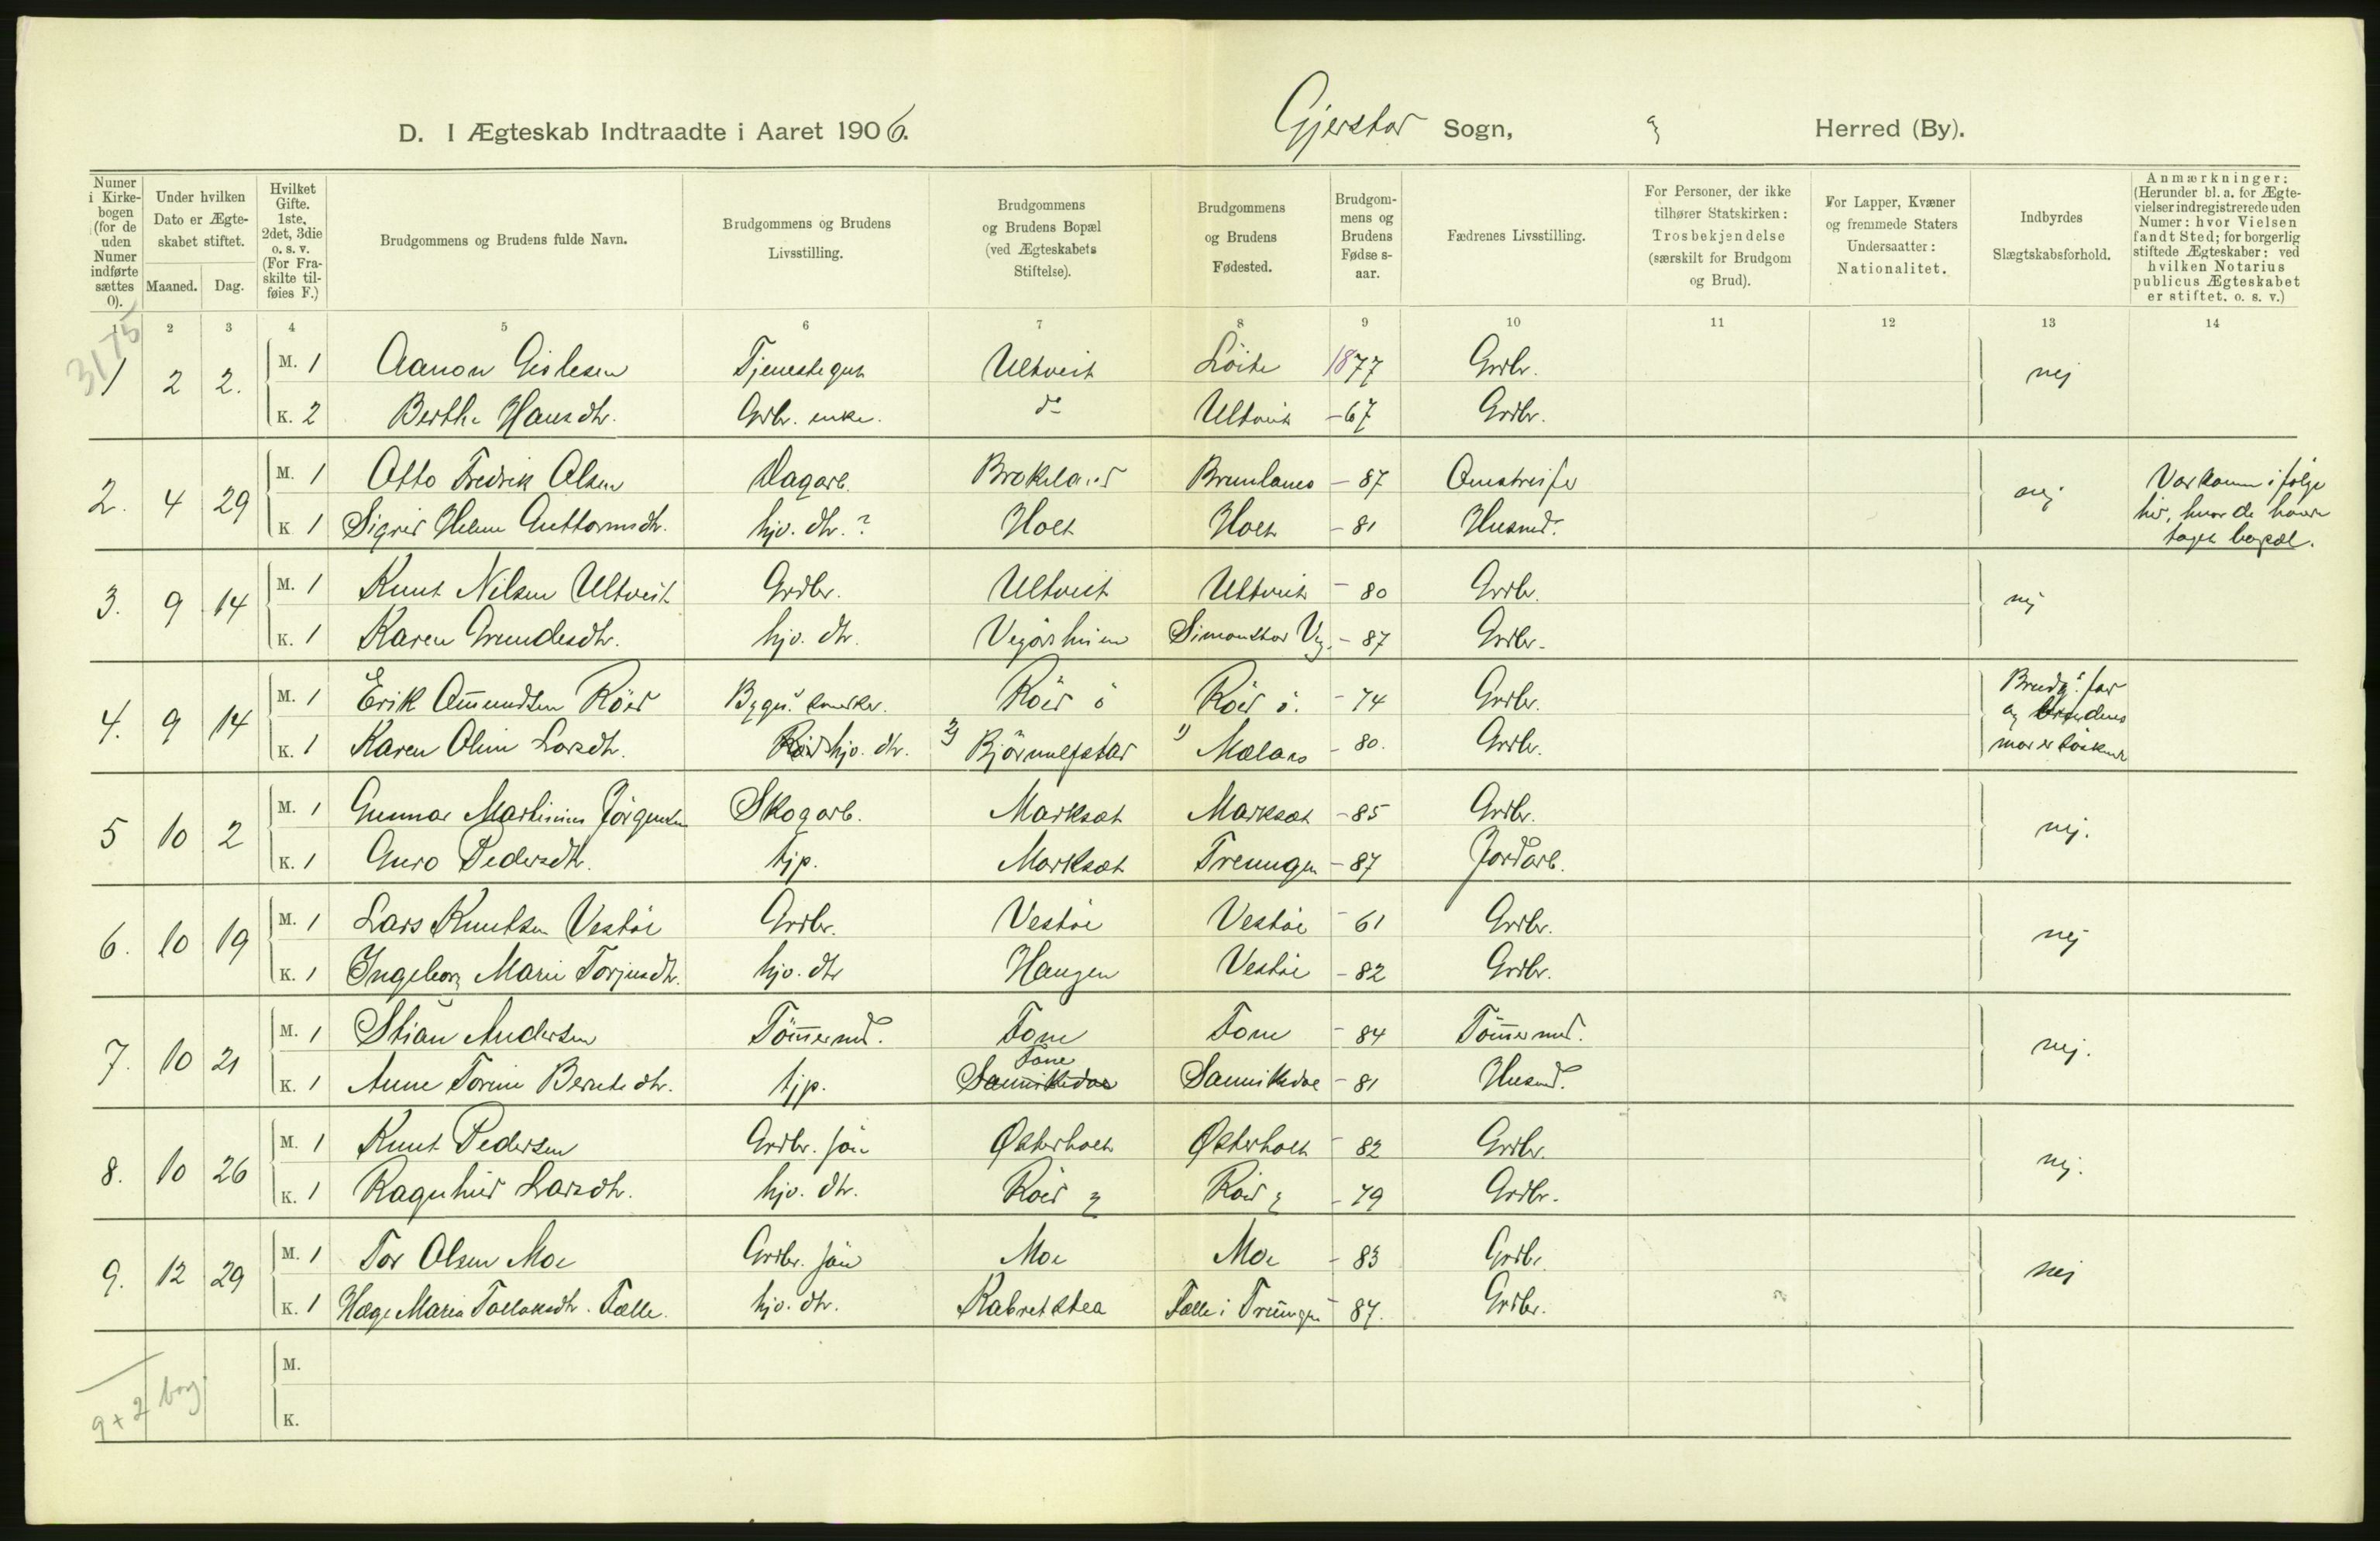 D. I Ægteskab Indtraadte i Aaret 1906. Gjerstad Sogn, Herred (By).
Numer i Kirkebogen (for de uden Numer indførte sættes 0).
Under hvilken Dato er Ægteskabet stiftet.
Maaned. Dag.
Hvilket Gifte. 1ste, 2det, 3die o. s. v. (For Fraskilte tilføies F.)
Brudgommens og Brudens fulde Navn.
Brudgommens og Brudens Livsstilling.
Brudgommens og Brudens Bopæl (ved Ægteskabets Stiftelse).
Brudgommens og Brudens Fødested.
Brudgommens og Brudens Fødselsaar.
Fædrenes Livsstilling.
For Personer, der ikke tilhører Statskirken: Trosbekjendelse (særskilt for Brudgom og Brud).
For Lapper, Kvæner og fremmede Staters Undersaatter: Nationalitet.
Indbyrdes Slægtskabsforhold.
Anmærkninger: (Herunder bl. a. for Ægtevielser indregistrerede uden Numer: hvor Vielsen fandt Sted; for borgerlig stiftede Ægteskaber: ved hvilken Notarius publicus Ægteskabet er stiftet. o. s. v.)
1 2 3 4 5 6 7 8 9 10 11 12 13 14
3175
1 2 2. M. 1 Aanon Gislesen Tjenestegut Ultveit Löite 1877 Grdbr. nej
K. 2 Berthe Hansdtr. Grdbr. enke. do Ultveit -67 Grdbr.
2. 4 29 M. 1 Otto Fredrik Olsen Dagarb. Brokeland Brunlanes - 87 nej Var kommen i følge
K 1 Sigrid Helene Guttormsdtr. hjv. dtr. ? Holt Holt - 81 Husmd. her, hvor de havde
taget bopæl.
3. 9 14 M. 1 Knut Nilsen Ultveit Grdbr. Ultveit Ultveit - 80 Grdbr. nej
K. 1 Karen Grundesdtr. hjv. dtr. Vegårsheien Simonstad Veg. - 87 Grdbr.
4. 9 14 M. 1 Erik Amundsen Röed Bygn. snedker. Röed ö Röed ö. - 74 Grdbr. Brudg.s far
og brudens
K. 1 Karen Oline Larsdtr. hjv. dtr. 2) Björnulfstad 1) Mælaas - 80. Grdbr. mor er söskend
5 10 2 M. 1 Gunnar Martinius Jörgensen Skogarb. Marksæt Marksæt - 85 Grdbr. nej.
K. 1 Guro Pedersdtr. tjp. Marksæt Treungen - 87 Jordarb.
6. 10 19 M. 1 Lars Knutsen Vestöl Grdbr. Vestöl Vestöl - 61 Grdbr. nej
K. 1 Ingeborg Marie Torjusdtr. hjv. dtr Haugen Vestöl - 82 Grdbr.
7. 10 21 M. 1 Stian Andersen Tömmermd. Fone Fone - 84 Tömmermd. nej.
Fone
K. 1 Anne Torine Berntsdtr. tjp. Sannikedal Sannikedal - 81 Husmd.
8. 10 26 M. 1 Knut Pedersen Grdbr. sön Østerholt Østerholt - 82 Grdbr. nej.
K. 1 Ragnhild Larsdtr. hjv. dtr. Röed Röed - 79 Grdbr.
9. 12 29 M. 1 Tor Olsen Moe Grdbr. sön Moe Moe - 83 Grdbr. nej
K. 1 Hæge Maria Tallaksdtr. Fælle. hjv. dtr. Fælle i Treungen - 87. Grdbr.
M.
9 + 2 borg.
K.